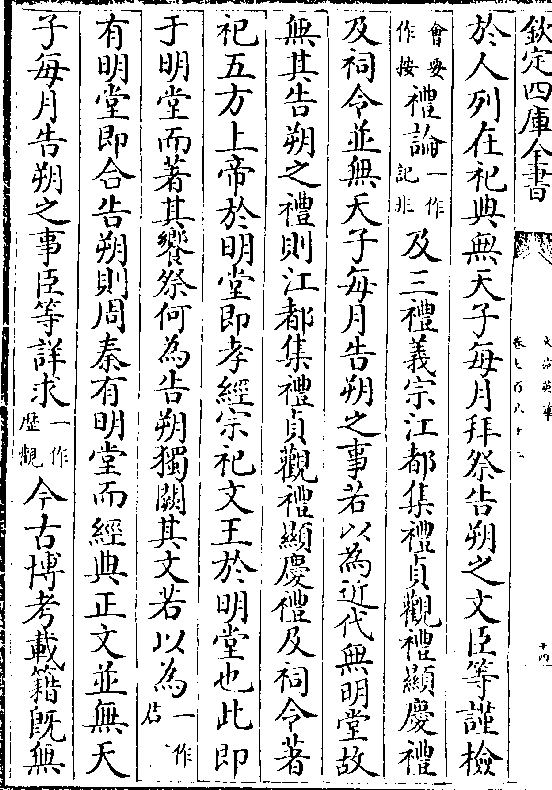 欽定四庫全書
於人列在祀典無天子每月拜祭告朔之文臣等謹檢
會要作按禮論一作記非及三禮義宗江都集禮貞觀禮顯慶禮
及祠令並無天子每月告朔之事若以為近代無明堂故
無其告朔之禮則江都集禮貞觀禮顯慶禮及祠令著
祀五方上帝於明堂即孝經宗祀文王於明堂也此即
于明堂而著其饗祭何為告朔獨闕其文若以為一作
有明堂即合告朔則周秦有明堂而經典正文並無天
子每月告朔之事臣等詳求一作歷觀今古博考載籍既無